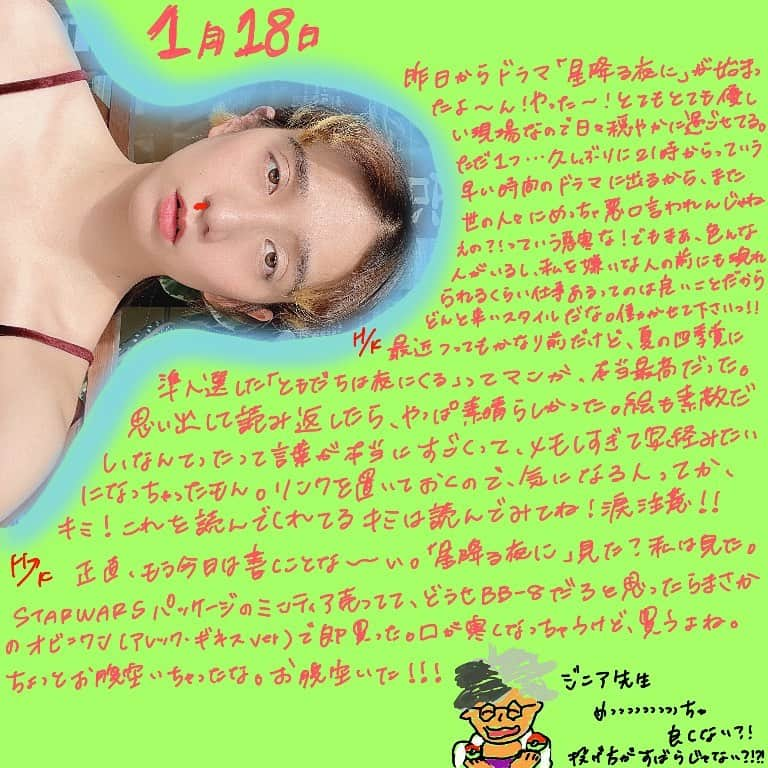 1月18日
昨日からドラマ「星降る夜に」が始まっ
たよ〜ん!やった〜!とてもとても優し
い現場なので日々穏やかに過ごせてる。
ただ1つ…久しぶりに21時からっていう
早い時間のドラマに出るから、また
世の人々にめっちゃ悪口言われんじゃね
えの?!っていう悪寒な!でもまあ、色んな
人がいるし、私を嫌いな人の前にも現れ
られるくらい仕事あるってのは良いことだから
どんと来いスタイルだな。働かせて下さいっ!!
H/K 最近つってもかなり前だけど、夏の四季賞に
準入選した「ともだちは夜にくる」ってマンガ、本当最高だった。
思い出して読み返したら、やっぱ素晴らしかった。絵も素敵だ
しなんてったって言葉が本当にすごくって、メモしすぎて写経みたい
になっちゃったもん。リンクを置いておくので、気になる人ってか、
キミ!これを読んでくれてるキミは読んでみてね!涙注意!!
H↗K 正直、もう今日は書くことな〜い。「星降る夜に」見た?私は見た。
STARWARSパッケージのミンティア売ってて、どうせBB-8だろと思ったらまさか
のオビ=ワン(アレック・ギネスver)で即買った。口が寒くなっちゃうけど、買うよね。
ちょっとお腹空いちゃったな。お腹空いた!!!
ジニア先生
めっっっっっっっっっちゃ
良くない?!
投げ方がすばらじゃない?!?!